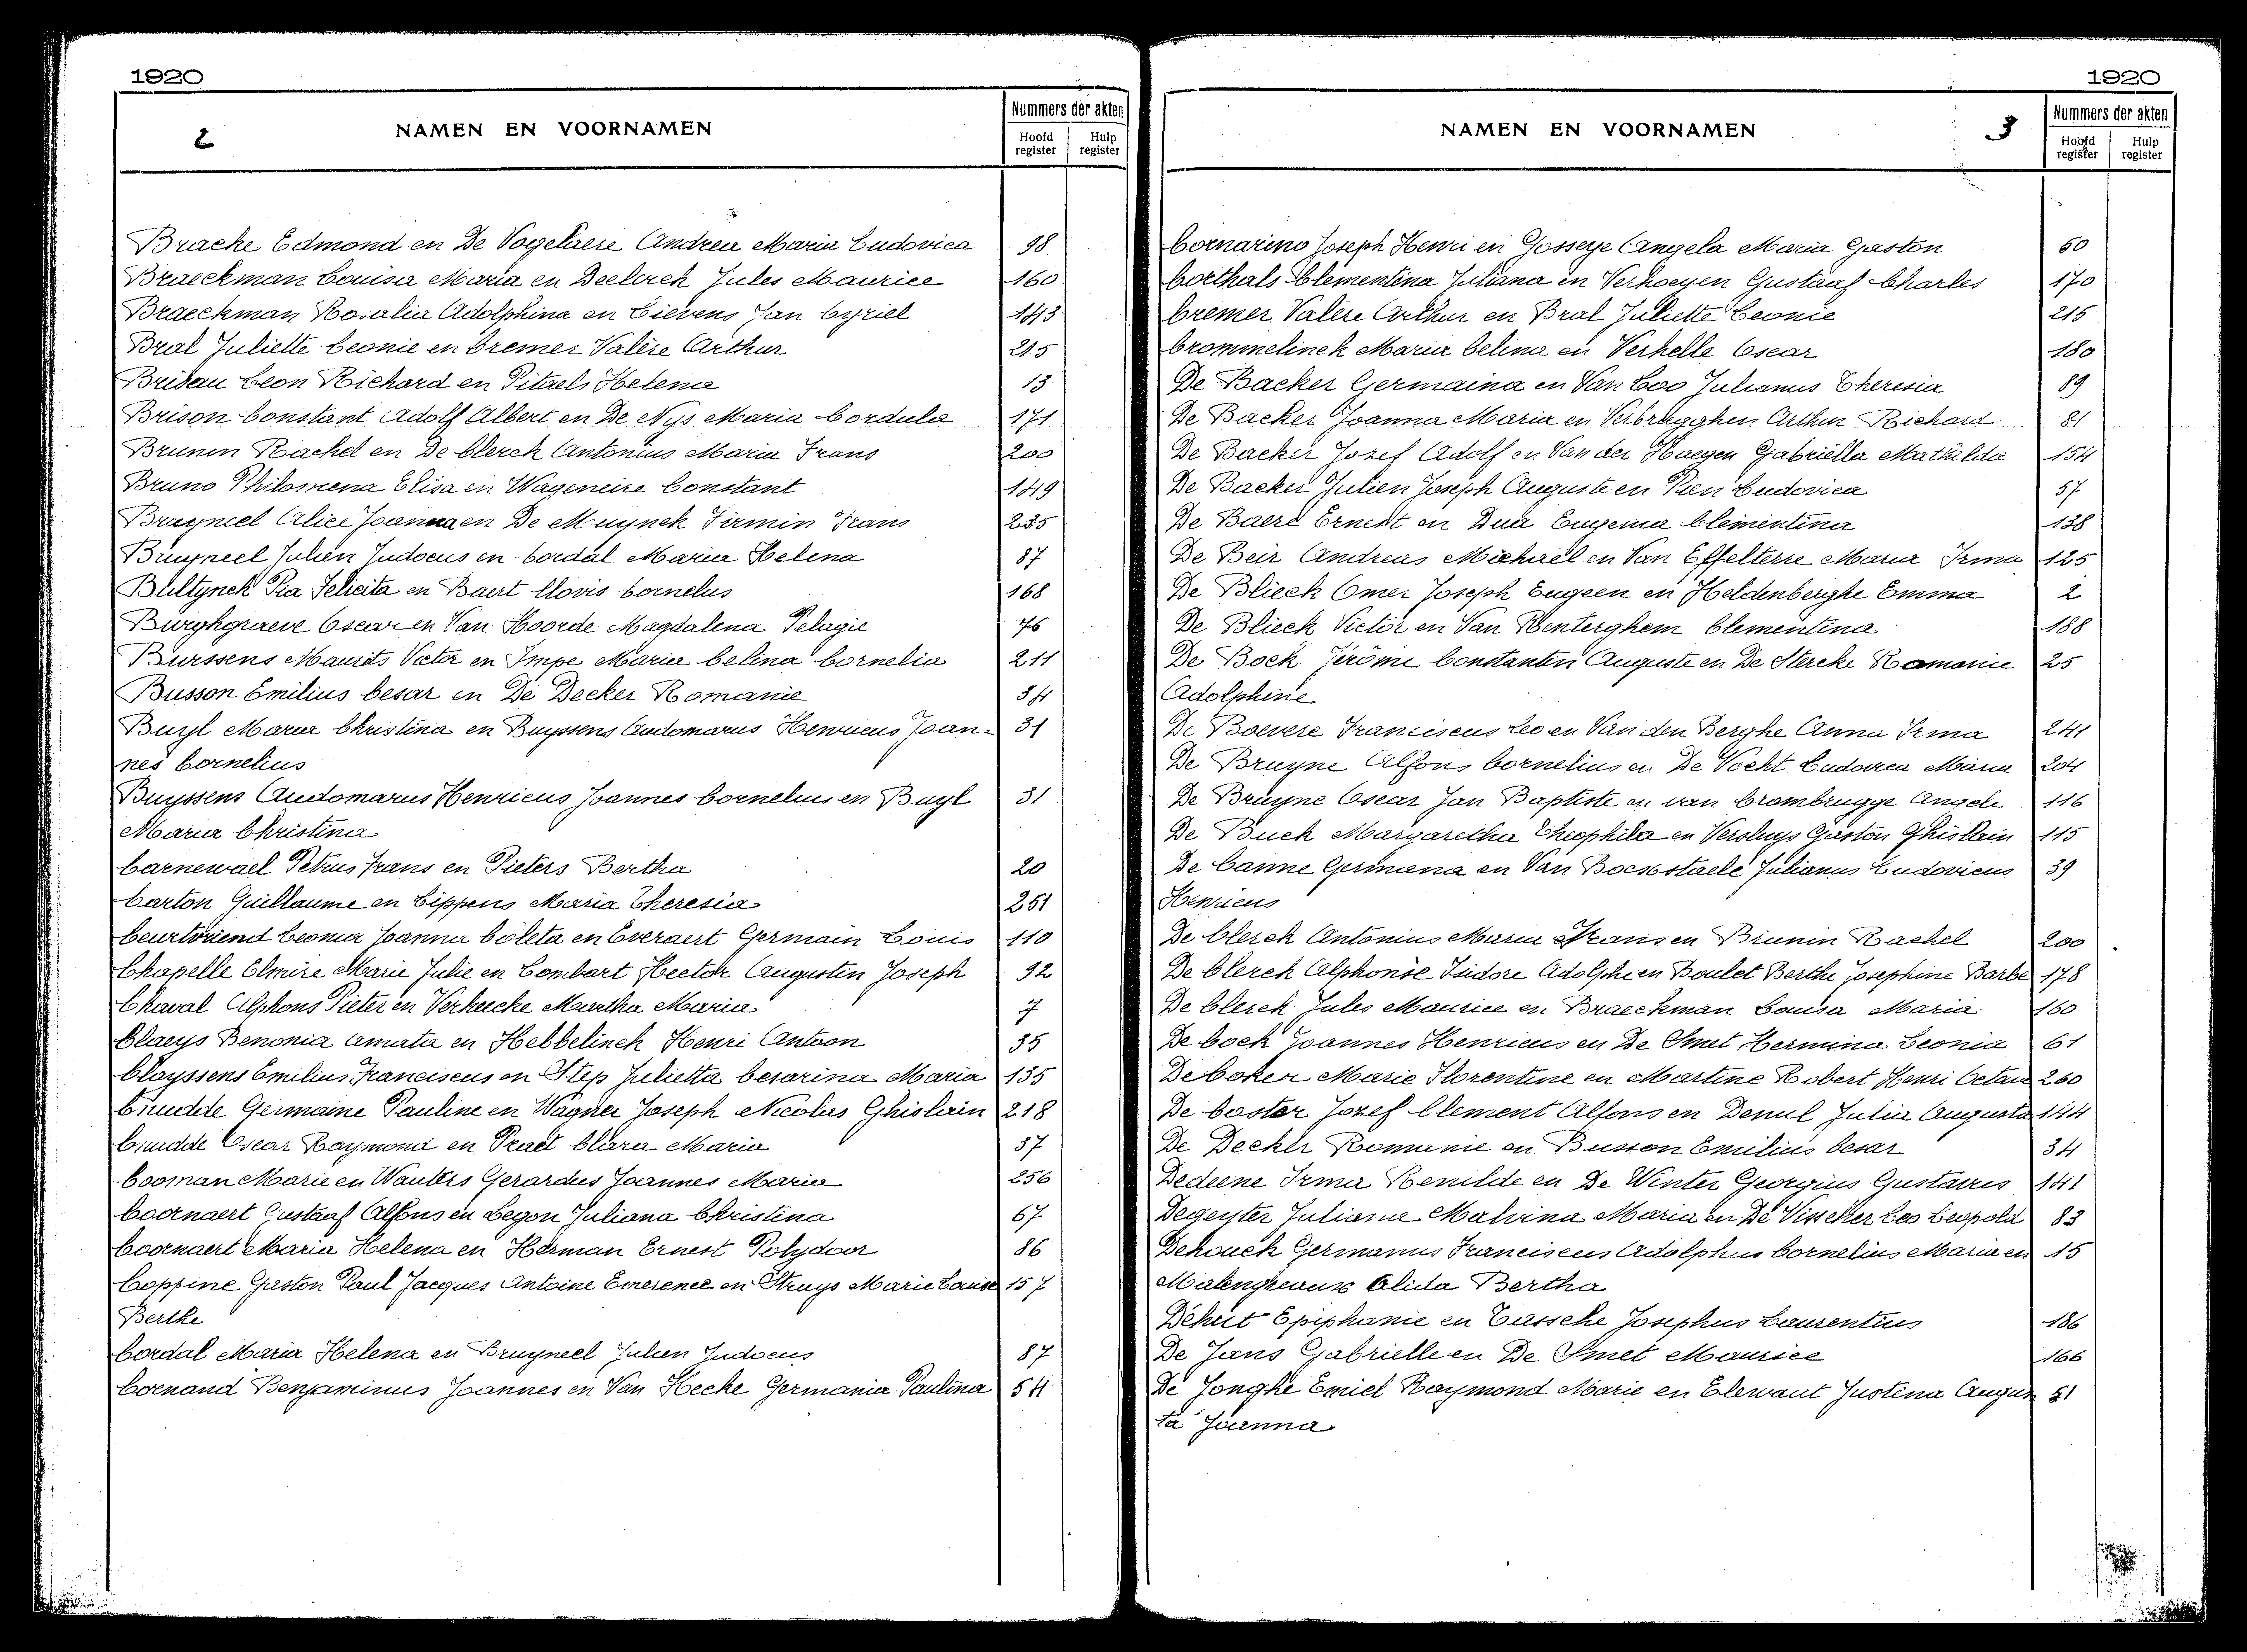 1920
2
NAMEN EN VOORNAMEN
Nummers der akten
Hoofd register
Hulp register
Bracke Edmond en De Vogelaere Andrea Maria Ludovica 98
Braeckman Louisa Maria en Declerck Jules Maurice 160
Braeckman Rosalia Adolphina en Lievens Jan Cyriel 143
Bral Juliette Leonie en Cremer Valère Arthur 215
Bridau Leon Richard en Pitaels Helena 13
Brison Constant Adolf Albert en De Nys Maria Cordula 171
Brunin Rachel en De Clerck Antonius Maria Frans 200
Bruno Philomena Elisa en Wageneire Constant 149
Bruyneel Alice Joanna en De Muynck Firmin Frans 235
Bruyneel Julien Judocus en Cordal Maria Helena 87
Bultynck Pia Felicita en Baert Clovis Cornelus 168
Burghgraeve Oscar en Van Hoorde Magdalena Pelagie 76
Burssens Maurits Victor en Impe Maria Celina Cornelia 211
Busson Emilius Cesar en De Decker Romanie 34
Buyl Maria Christina en Buyssens Audomarus Henricus Joan- 31
nes Cornelius
Buyssens Audomarus Henricus Joannes Cornelius en Buyl 31
Maria Christina
Carnewael Petrus Frans en Pieters Bertha 20
Carton Guillaume en Lippens Maria Theresia 251
Ceurtvriend Leonia Joanna Coleta en Everaert Germain Louis 110
Chapelle Elmire Marie Julie en Lombart Hector Augustin Joseph 92
Chaval Alphons Pieter en Verheecke Martha Maria 7
Claeys Benonia Amata en Hebbelinck Henri Antoon 35
Clayssens Emilius Franciscus en Step Julietta Cesarina Maria 135
Cnudde Germaine Pauline en Wagner Joseph Nicolas Ghislain 218
Cnudde Oscar Raymond en Praet Clara Maria 37
Cooman Marie en Wauters Gerardus Joannes Maria 256
Coornaert Gustaaf Alfons en Legon Juliana Christina 67
Coornaert Maria Helena en Herman Ernest Polydoor 86
Coppine Gaston Paul Jacques Antoine Emerence en Struys Marie Louise 157
Berthe
Cordal Maria Helena en Bruyneel Julien Judocus 87
Cornand Benjaminus Joannes en Van Hecke Germania Paulina 54
1920
NAMEN EN VOORNAMEN
3
Nummers der akten
Hoofd register
Hulp register
Cornarino Joseph Henri en Gosseye Angela Maria Gaston 50
Corthals Clementina Juliana en Verhoeyen Gustaaf Charles 170
Cremer Valère Arthur en Bral Juliette Leonie 215
Crommelinck Maria Celina en Verhelle Oscar 180
De Backer Germaina en Van Loo Julianus Theresia 89
De Backer Joanna Maria en Verbrugghen Arthur Richard 81
De Backer Jozef Adolf en Van der Haegen Gabriëlla Mathilda 154
De Backer Julien Joseph Auguste en Pien Ludovica 57
De Baere Ernest en Dua Eugenia Clementina 138
De Beir Andreas Michaël en Van Effelterre Maria Irma 125
De Blieck Omer Joseph Eugeen en Heldenberghe Emma 2
De Blieck Victor en Van Renterghem Clementina 188
De Bock Jerôme Constantin Auguste en De Stercke Romanie 25
Adolphine
De Boevere Franciscus Leo en Van den Berghe Anna Irma 241
De Bruyne Alfons Cornelius en De Vocht Ludovica Maria 204
De Bruyne Oscar Jan Baptiste en van Crombrugge Angele 116
De Buck Margaretha Theophila en Versluys Gaston Ghislain 115
De Canne Germana en Van Bockstaele Julianus Ludovicus 39
Henricus
De Clerck Antonius Maria Frans en Brunin Rachel 200
De Clerck Alphonse Isidore Adolphe en Boulet Berthe Josephine Barbe 178
De Clerck Jules Maurice en Braeckman Louisa Maria 160
De Cock Joannes Henricus en De Smet Hermina Leonia 61
De Coker Marie Florentine en Martine Robert Henri Octave 260
De Coster Jozef Clement Alfons en Demul Julia Augusta 144
De Decker Romanie en Busson Emilius Cesar 34
Dedeene Irma Renilde en De Winter Georgius Gustavus 141
Degeyter Juliana Malvina Maria en De Visscher Leo Leopold 83
Dehouck Germanus Franciscus Adolphus Cornelius Maria en 15
Malengreaux Alida Bertha
Dehut Epiphanie en Tassche Josephus Laurentius 186
De Jans Gabrielle en De Smet Maurice 166
De Jonghe Emiel Raymond Marie en Elewaut Justina Augus 51
ta Joanna